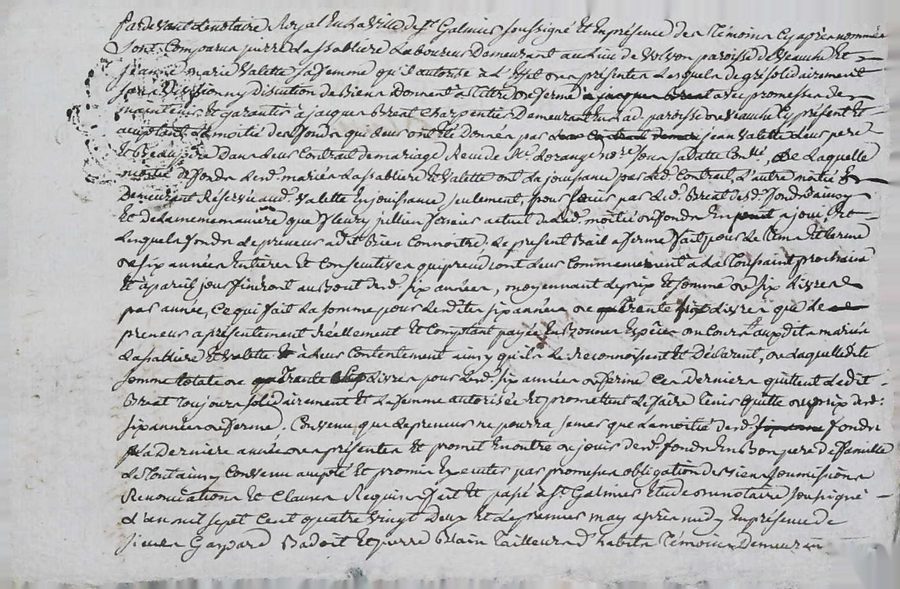 Pardevant Le notaire Royal En La Ville de St Galmier soussigné Et En présence des Témoins Cy après nommés
Sont Comparus pierre La Sabliere Laboureur Demeurant au Lieu de paroisse de Veauche Et
Jeanne marie Valette sa femme qu'il autorise a L'Effet des présentes Lesquels de gré solidairement
sans Division ny discution de Biens donnent a titre de ferme avec promesse de
maintenir Et garantir à jacques Breat Charpentier Demeurant En Lad. paroisse de Veauche Cy présent Et
acceptant La moitié des fonds qui Leur ont été donnés par jean Valette Leur pere
Et Beau pere Dans Leur Contrat de mariage Reçu de Me Lorange nore sous sa datte Conlé, De Laquelle
moitié de fonds Lesd. mariés La Sabliere Et Valette ont La jouissance par Led. Contrat, L'autre moitié
Demeurant Réservée aud. Valette En jouissance seulement, pour jouir par Led. Breat desd. fonds ainsy
Et de La meme maniere que fleury jullien fermier actuel de Lad. moitié de fonds En a joui Et
Lesquels fonds Le preneur a dit Bien Connoitre. Le present Bail a ferme fait pour Le tems Et terme
de six années Entieres Et Consecutives qui prendront Leur Commencement a La Toussaint prochaine
Et a pareil jour finiront au Bout desd. six années, moyennant Le prix Et somme de six Livres
par année, Ce qui fait La somme pour Lesdites six années de Trente six Livres que Le
preneur a présentement réellement Et Comptant payé En Bonnes Espèces de Cours auxdits mariés
La Sabliere Et Valette Et a Leur Contentement ainsy qu'ils Le reconnoissent Et Déclarent, de Laquelle dte
somme totale de Trente Six Livres pour Lesd. six années de ferme Ces derniers quittent Ledit
Breat toujours solidairement Et La femme autorisée Et promettent Le faire tenir quitte du prix desd.
six années de ferme. Convenu que Le preneur ne pourra semer que La moitié desd. fonds
La Derniere année des présentes Et promet En outre de jouir desd. fonds En Bon pere de famille
Le Tout ainsy Convenu accepté Et promis Executer par promesses obligation de Biens soumissions
Renonciations Et Clauses Requises fait Et passé a St Galmier Etude du notaire soussigné
L'an mil sept Cent quatre vingt Deux Et Le premier may après midy En présence de
sieurs Gaspard Badoit Et pierre Blain tailleurs d'habits Témoins Demeurans